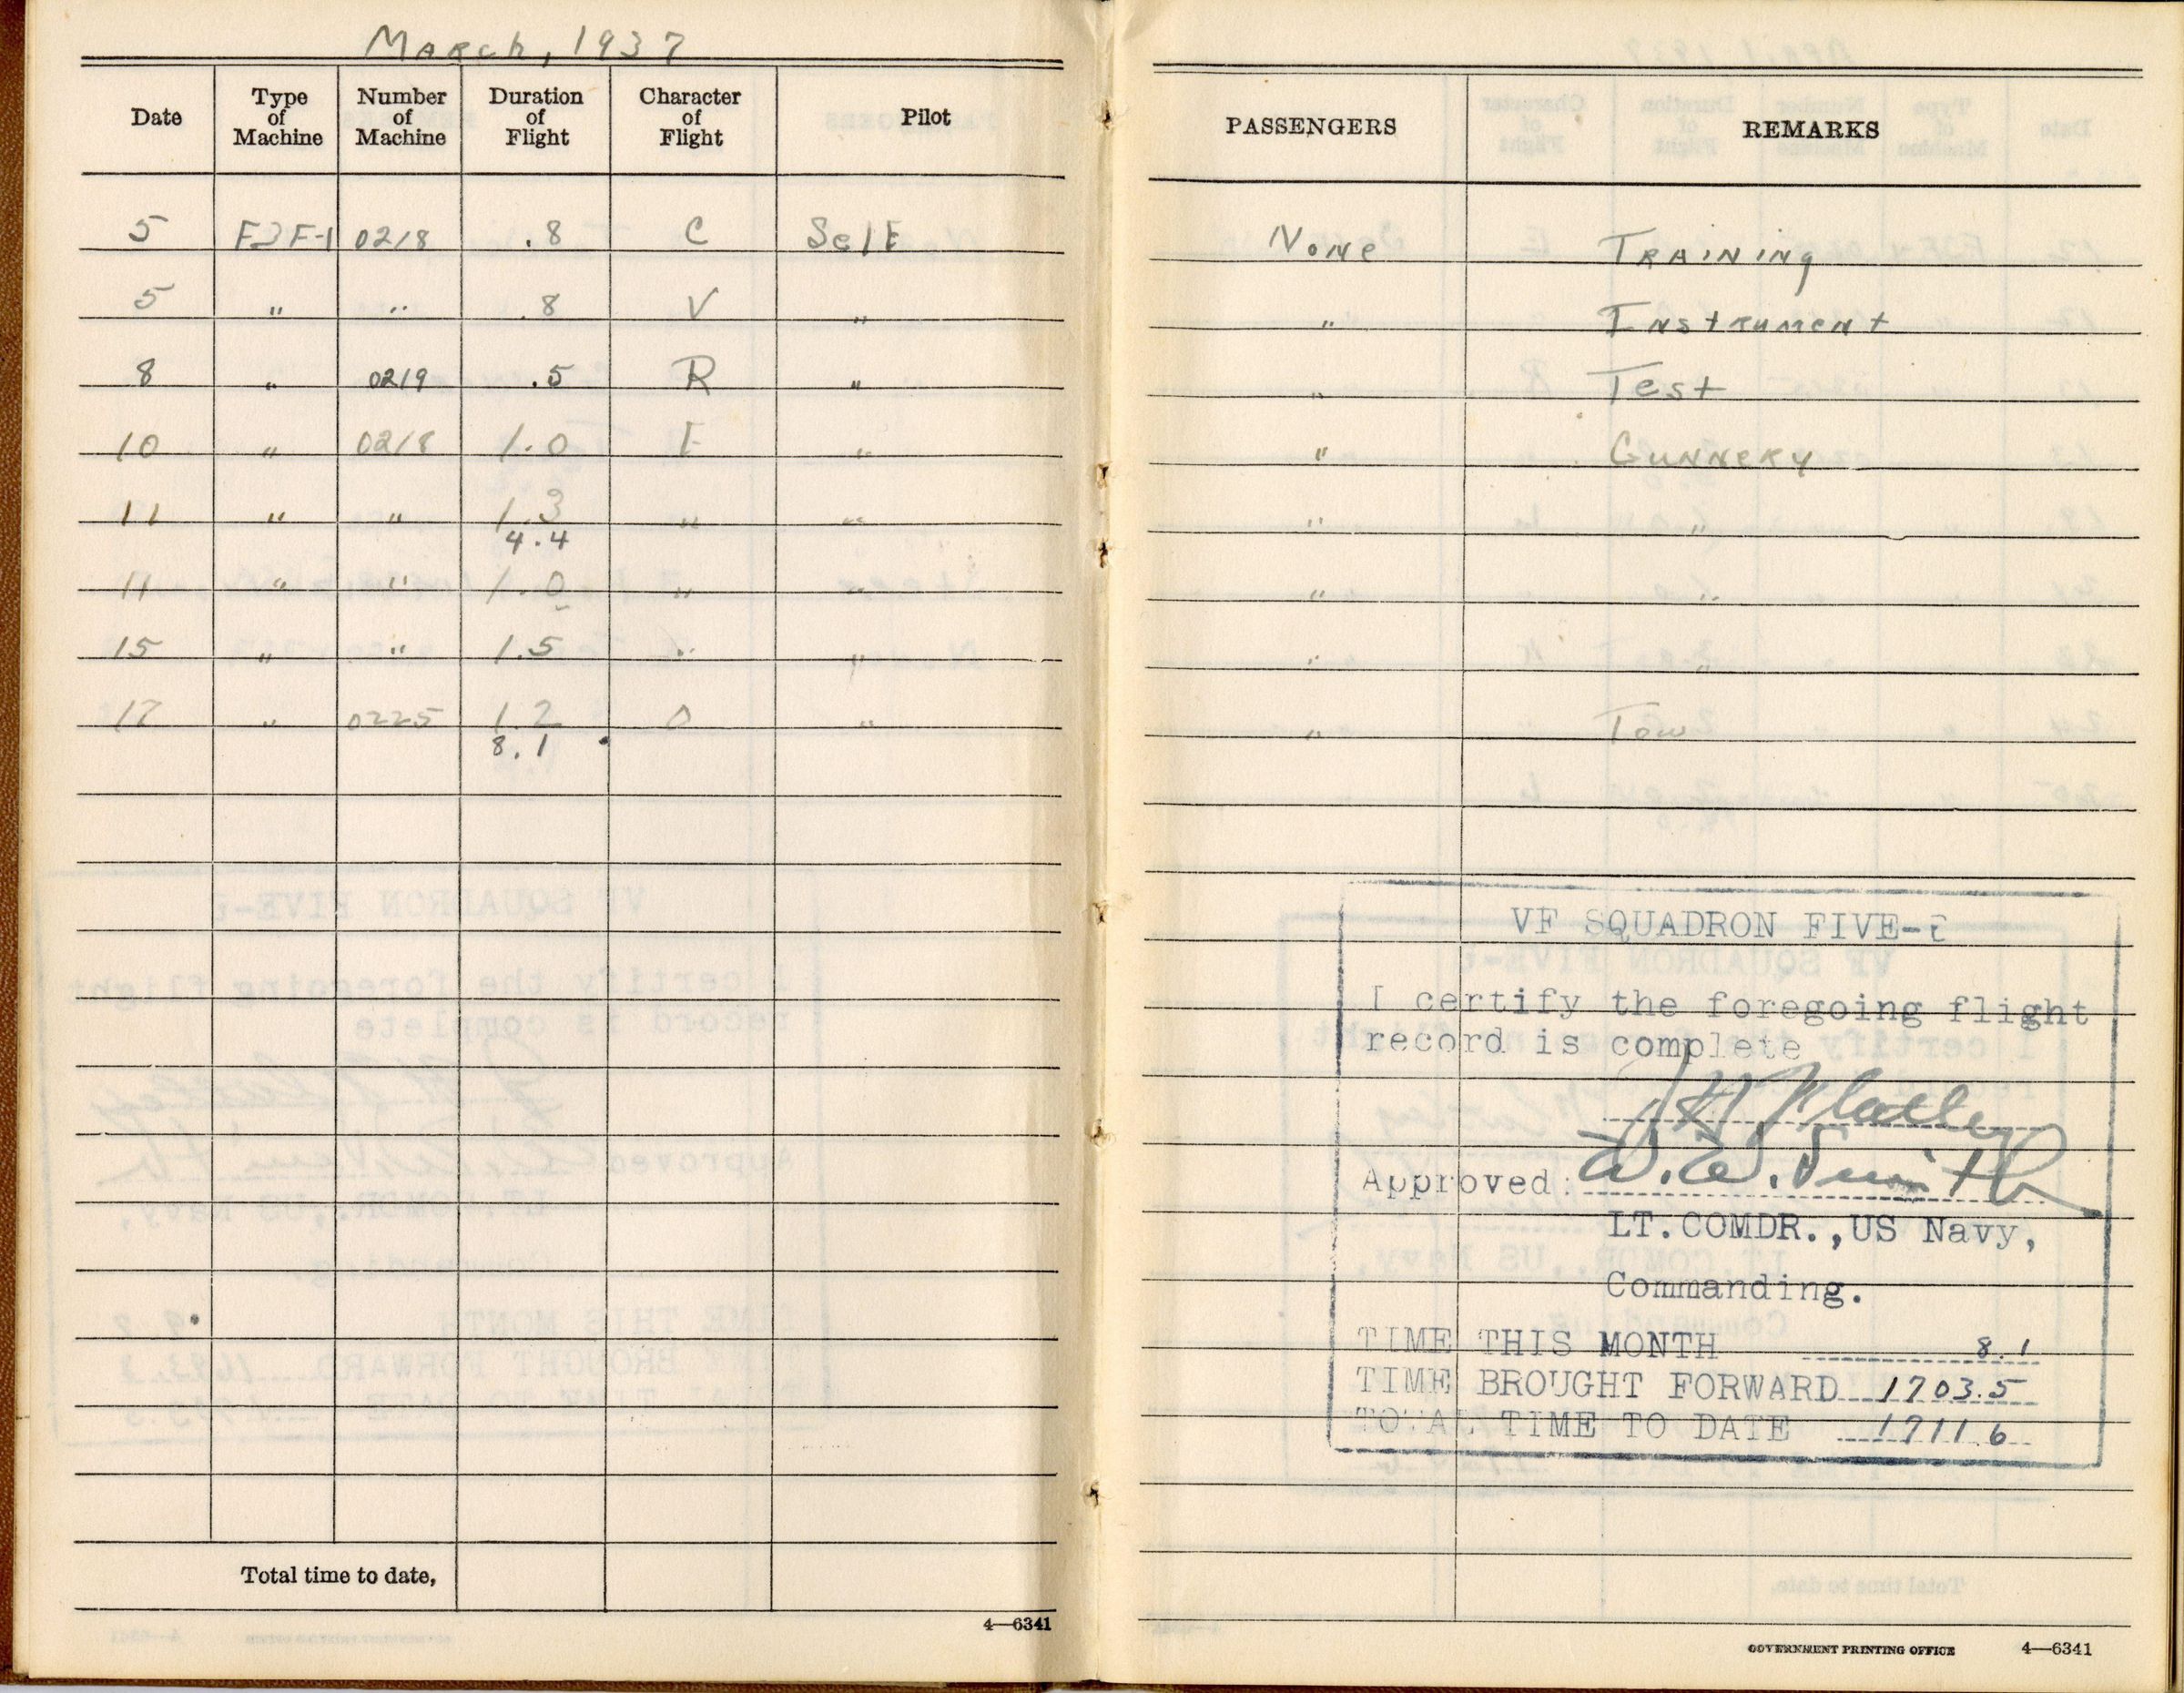 March, 1937
Date Type of Machine Number of Machine Duration of Flight Character of Flight Pilot
5 F3F-1 0218 .8 C Self
5 " " .8 V "
8 " 0219 .5 R "
10 " 0218 1.0 E "
11 " " 1.3 " "
4.4
11 " " 1.0 " "
15 " " 1.5 " "
17 " 0225 1.2 O "
8.1
Total time to date,
4—6341
PASSENGERS REMARKS
None Training
" Instrument
" Test
" Gunnery
" "
" "
" "
" Tow
VF SQUADRON FIVE-
I certify the foregoing flight
record is complete
Approved: W.W. Smith
LT.COMDR.,US Navy,
Commanding.
TIME THIS MONTH 8.1
TIME BROUGHT FORWARD 1703.5
TOTAL TIME TO DATE 1711.6
GOVERNMENT PRINTING OFFICE 4—6341